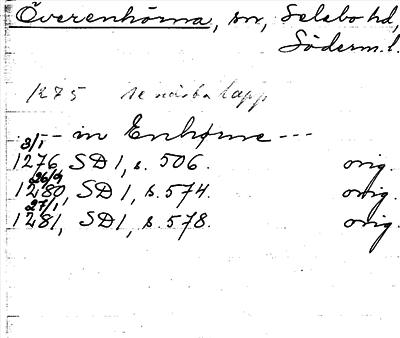 Överenhörna, sn, Selebo hd,
Söderm. l.
1275 se nästa lapp
-- in Enhørne ---
8/1
1276, SD 1, s. 506. orig.
26/9
1280, SD 1, s. 574. orig.
27/1
1281, SD 1, s. 578. orig.